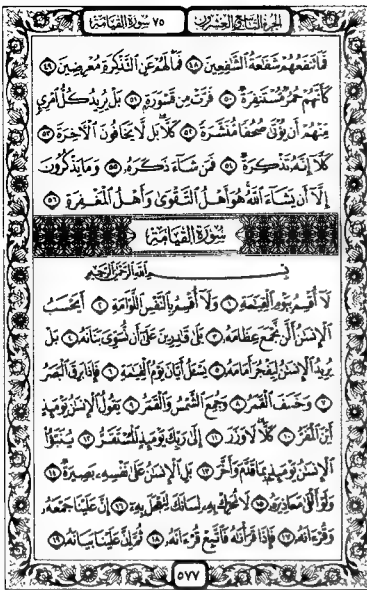 الجزء التاسع والعشرون
٧٥ سورة القيامة
فَمَا تَنفَعُهُمْ شَفَٰعَةُ ٱلشَّٰفِعِينَ ٤٨ فَمَا لَهُمْ عَنِ ٱلتَّذْكِرَةِ مُعْرِضِينَ ٤٩
كَأَنَّهُمْ حُمُرٌ مُّسْتَنفِرَةٌ ٥٠ فَرَّتْ مِن قَسْوَرَةٍ ٥١ بَلْ يُرِيدُ كُلُّ ٱمْرِئٍ
مِّنْهُمْ أَن يُؤْتَىٰ صُحُفًا مُّنَشَّرَةً ٥٢ كَلَّا بَل لَّا يَخَافُونَ ٱلْءَاخِرَةَ ٥٣
كَلَّآ إِنَّهُۥ تَذْكِرَةٌ ٥٤ فَمَن شَآءَ ذَكَرَهُۥ ٥٥ وَمَا يَذْكُرُونَ
إِلَّآ أَن يَشَآءَ ٱللَّهُ هُوَ أَهْلُ ٱلتَّقْوَىٰ وَأَهْلُ ٱلْمَغْفِرَةِ ٥٦
سُورَةُ القِيَامَةِ
بِسْمِ ٱللَّهِ ٱلرَّحْمَٰنِ ٱلرَّحِيمِ
لَآ أُقْسِمُ بِيَوْمِ ٱلْقِيَٰمَةِ ١ وَلَآ أُقْسِمُ بِٱلنَّفْسِ ٱللَّوَّامَةِ ٢ أَيَحْسَبُ
ٱلْإِنسَٰنُ أَلَّن نَّجْمَعَ عِظَامَهُۥ ٣ بَلَىٰ قَٰدِرِينَ عَلَىٰٓ أَن نُّسَوِّىَ بَنَانَهُۥ ٤ بَلْ
يُرِيدُ ٱلْإِنسَٰنُ لِيَفْجُرَ أَمَامَهُۥ ٥ يَسْـَٔلُ أَيَّانَ يَوْمُ ٱلْقِيَٰمَةِ ٦ فَإِذَا بَرِقَ ٱلْبَصَرُ
٧ وَخَسَفَ ٱلْقَمَرُ ٨ وَجُمِعَ ٱلشَّمْسُ وَٱلْقَمَرُ ٩ يَقُولُ ٱلْإِنسَٰنُ يَوْمَئِذٍ
أَيْنَ ٱلْمَفَرُّ ١٠ كَلَّا لَا وَزَرَ ١١ إِلَىٰ رَبِّكَ يَوْمَئِذٍ ٱلْمُسْتَقَرُّ ١٢ يُنَبَّؤُا۟
ٱلْإِنسَٰنُ يَوْمَئِذٍۭ بِمَا قَدَّمَ وَأَخَّرَ ١٣ بَلِ ٱلْإِنسَٰنُ عَلَىٰ نَفْسِهِۦ بَصِيرَةٌ ١٤
وَلَوْ أَلْقَىٰ مَعَاذِيرَهُۥ ١٥ لَا تُحَرِّكْ بِهِۦ لِسَانَكَ لِتَعْجَلَ بِهِۦٓ ١٦ إِنَّ عَلَيْنَا جَمْعَهُۥ
وَقُرْءَانَهُۥ ١٧ فَإِذَا قَرَأْنَٰهُ فَٱتَّبِعْ قُرْءَانَهُۥ ١٨ ثُمَّ إِنَّ عَلَيْنَا بَيَانَهُۥ ١٩
٥٧٧